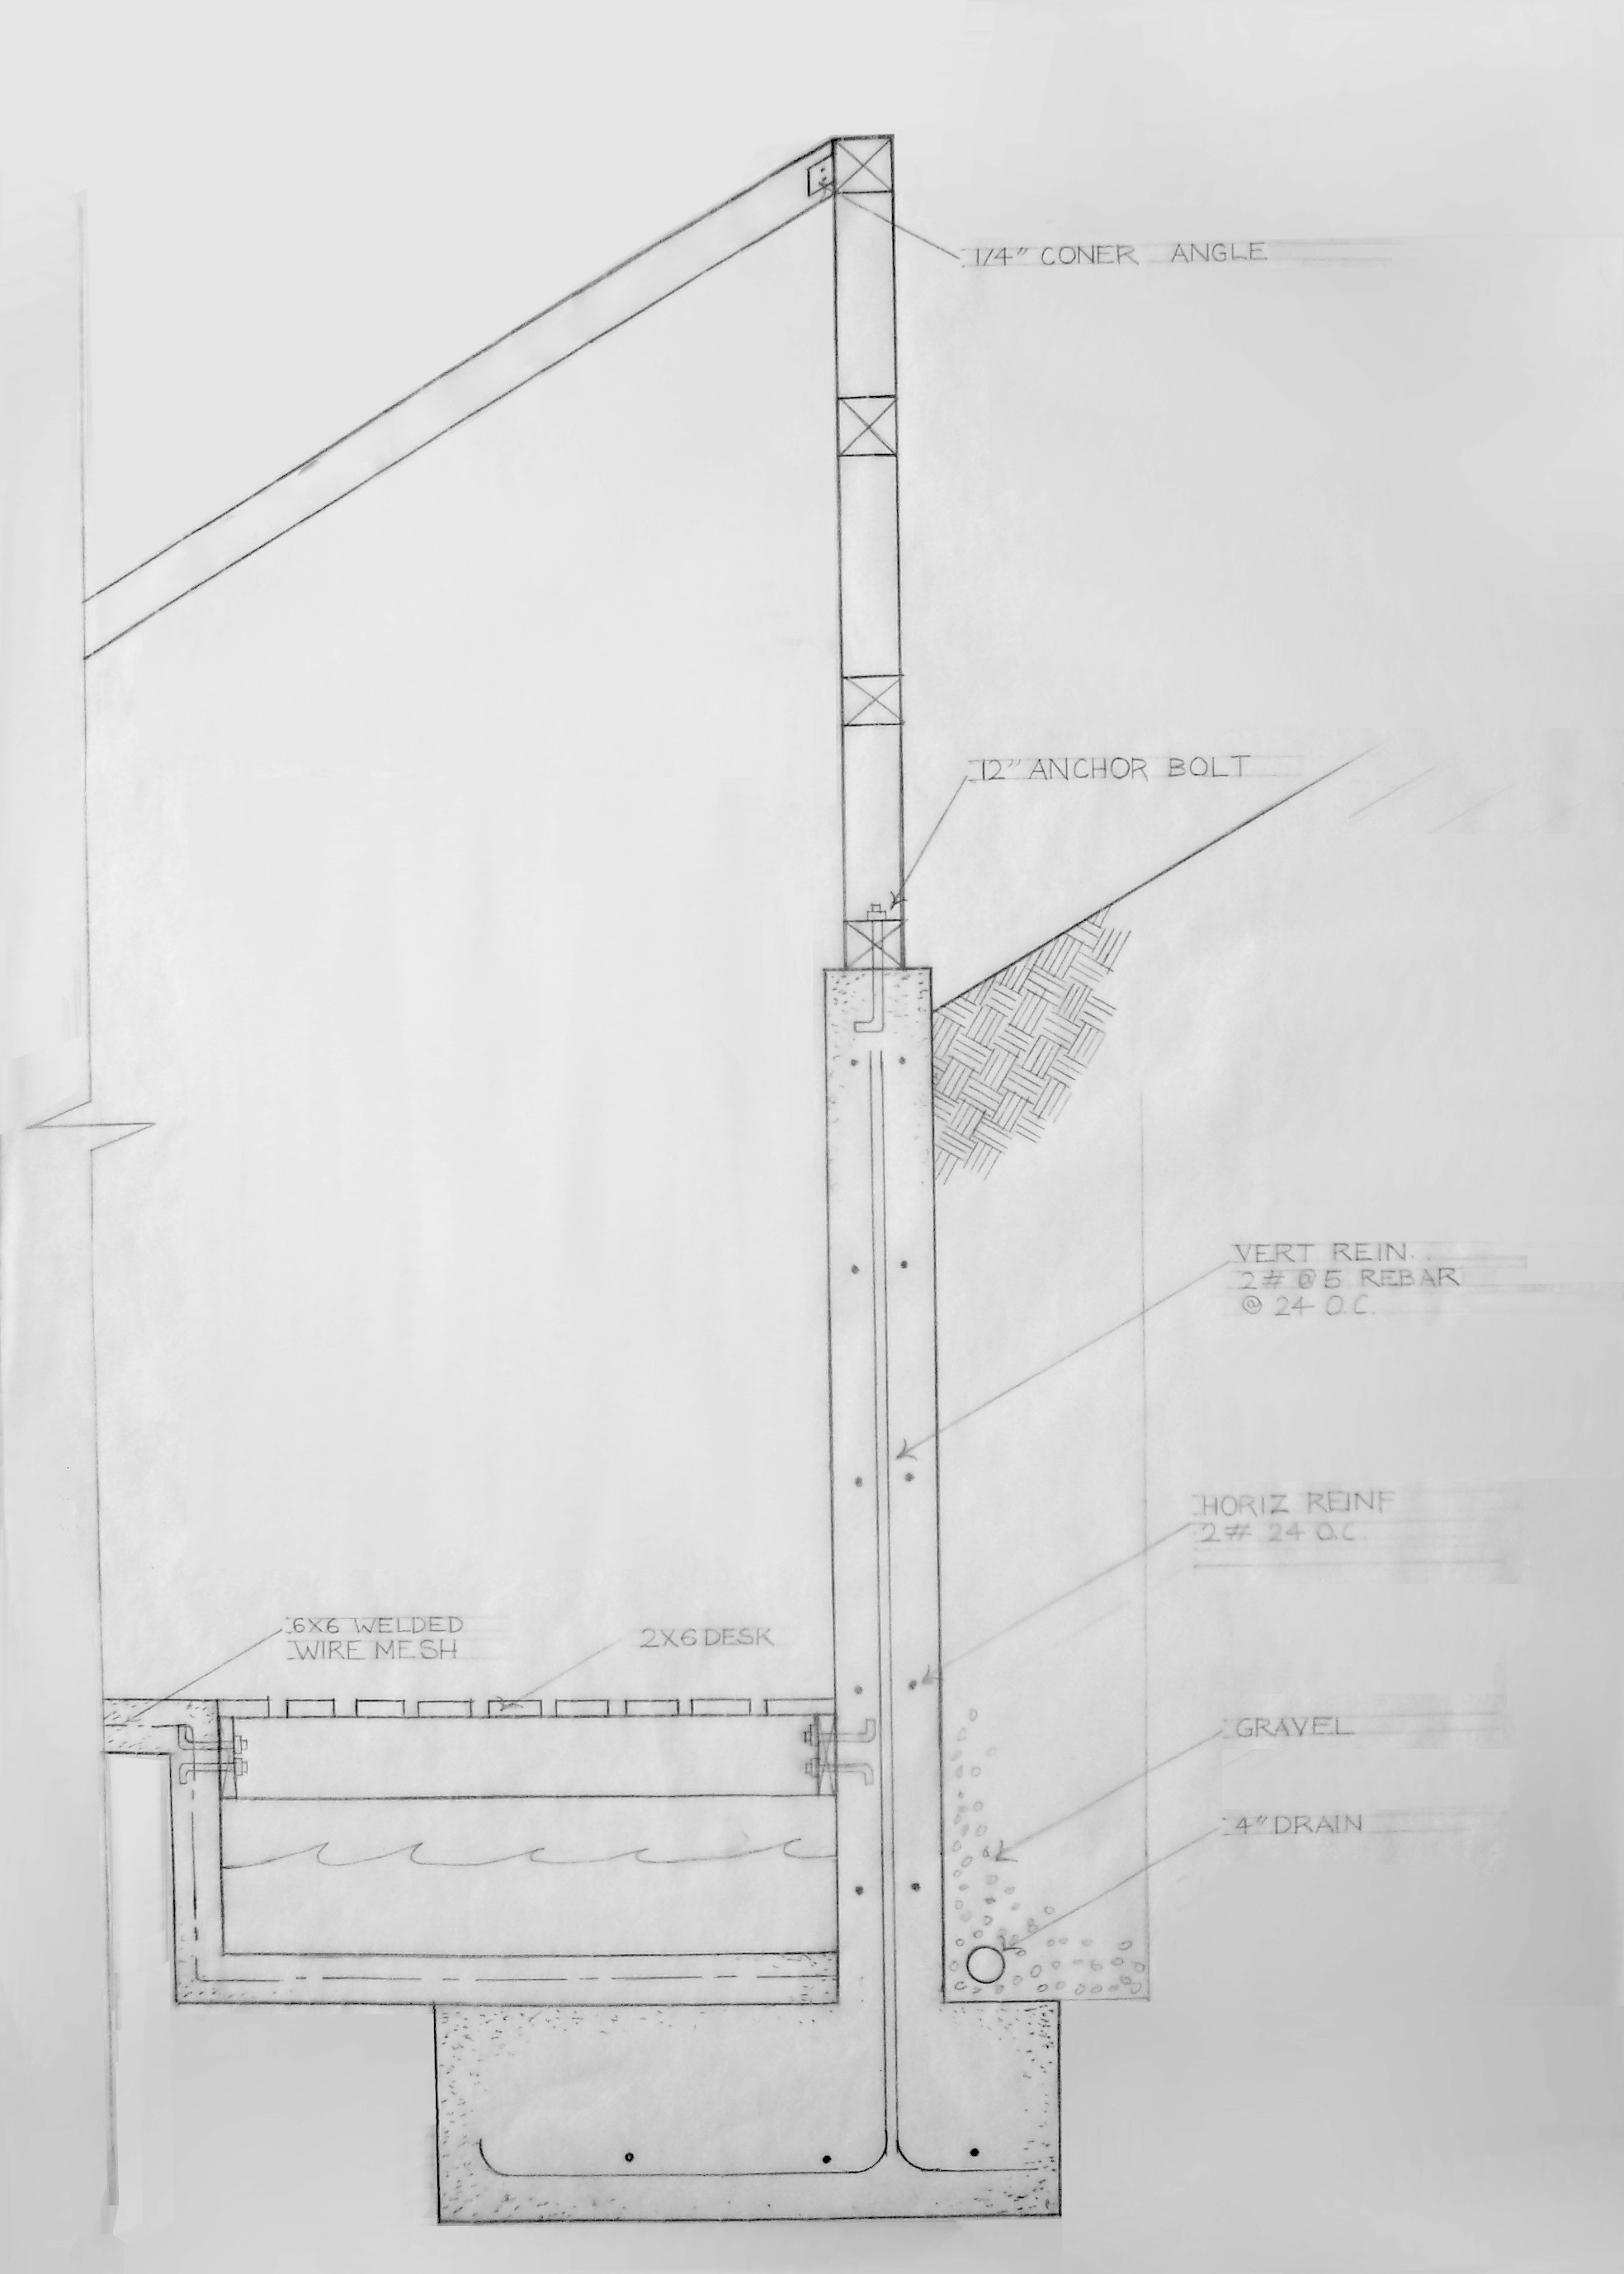 1/4" CONER ANGLE
12" ANCHOR BOLT
VERT REIN.
2# @5 REBAR
@ 24 O.C.
HORIZ REINF
2# 24 O.C.
6X6 WELDED
WIRE MESH
2X6 DESK
GRAVEL
4" DRAIN